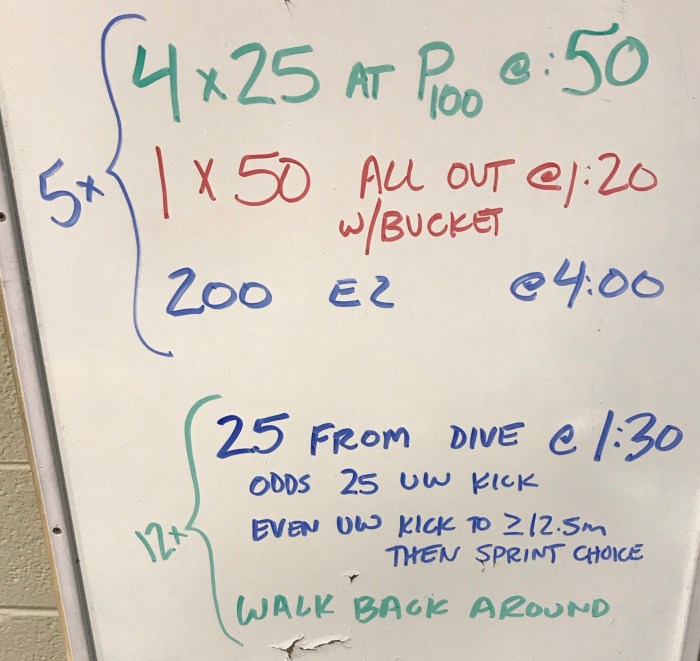 5x
4 x 25 AT P100 @ :50
1 x 50 ALL OUT @ 1:20
W/BUCKET
200 EZ @ 4:00
12x
25 FROM DIVE @ 1:30
ODDS 25 UW KICK
EVEN UW KICK TO ≥12.5m
THEN SPRINT CHOICE
WALK BACK AROUND